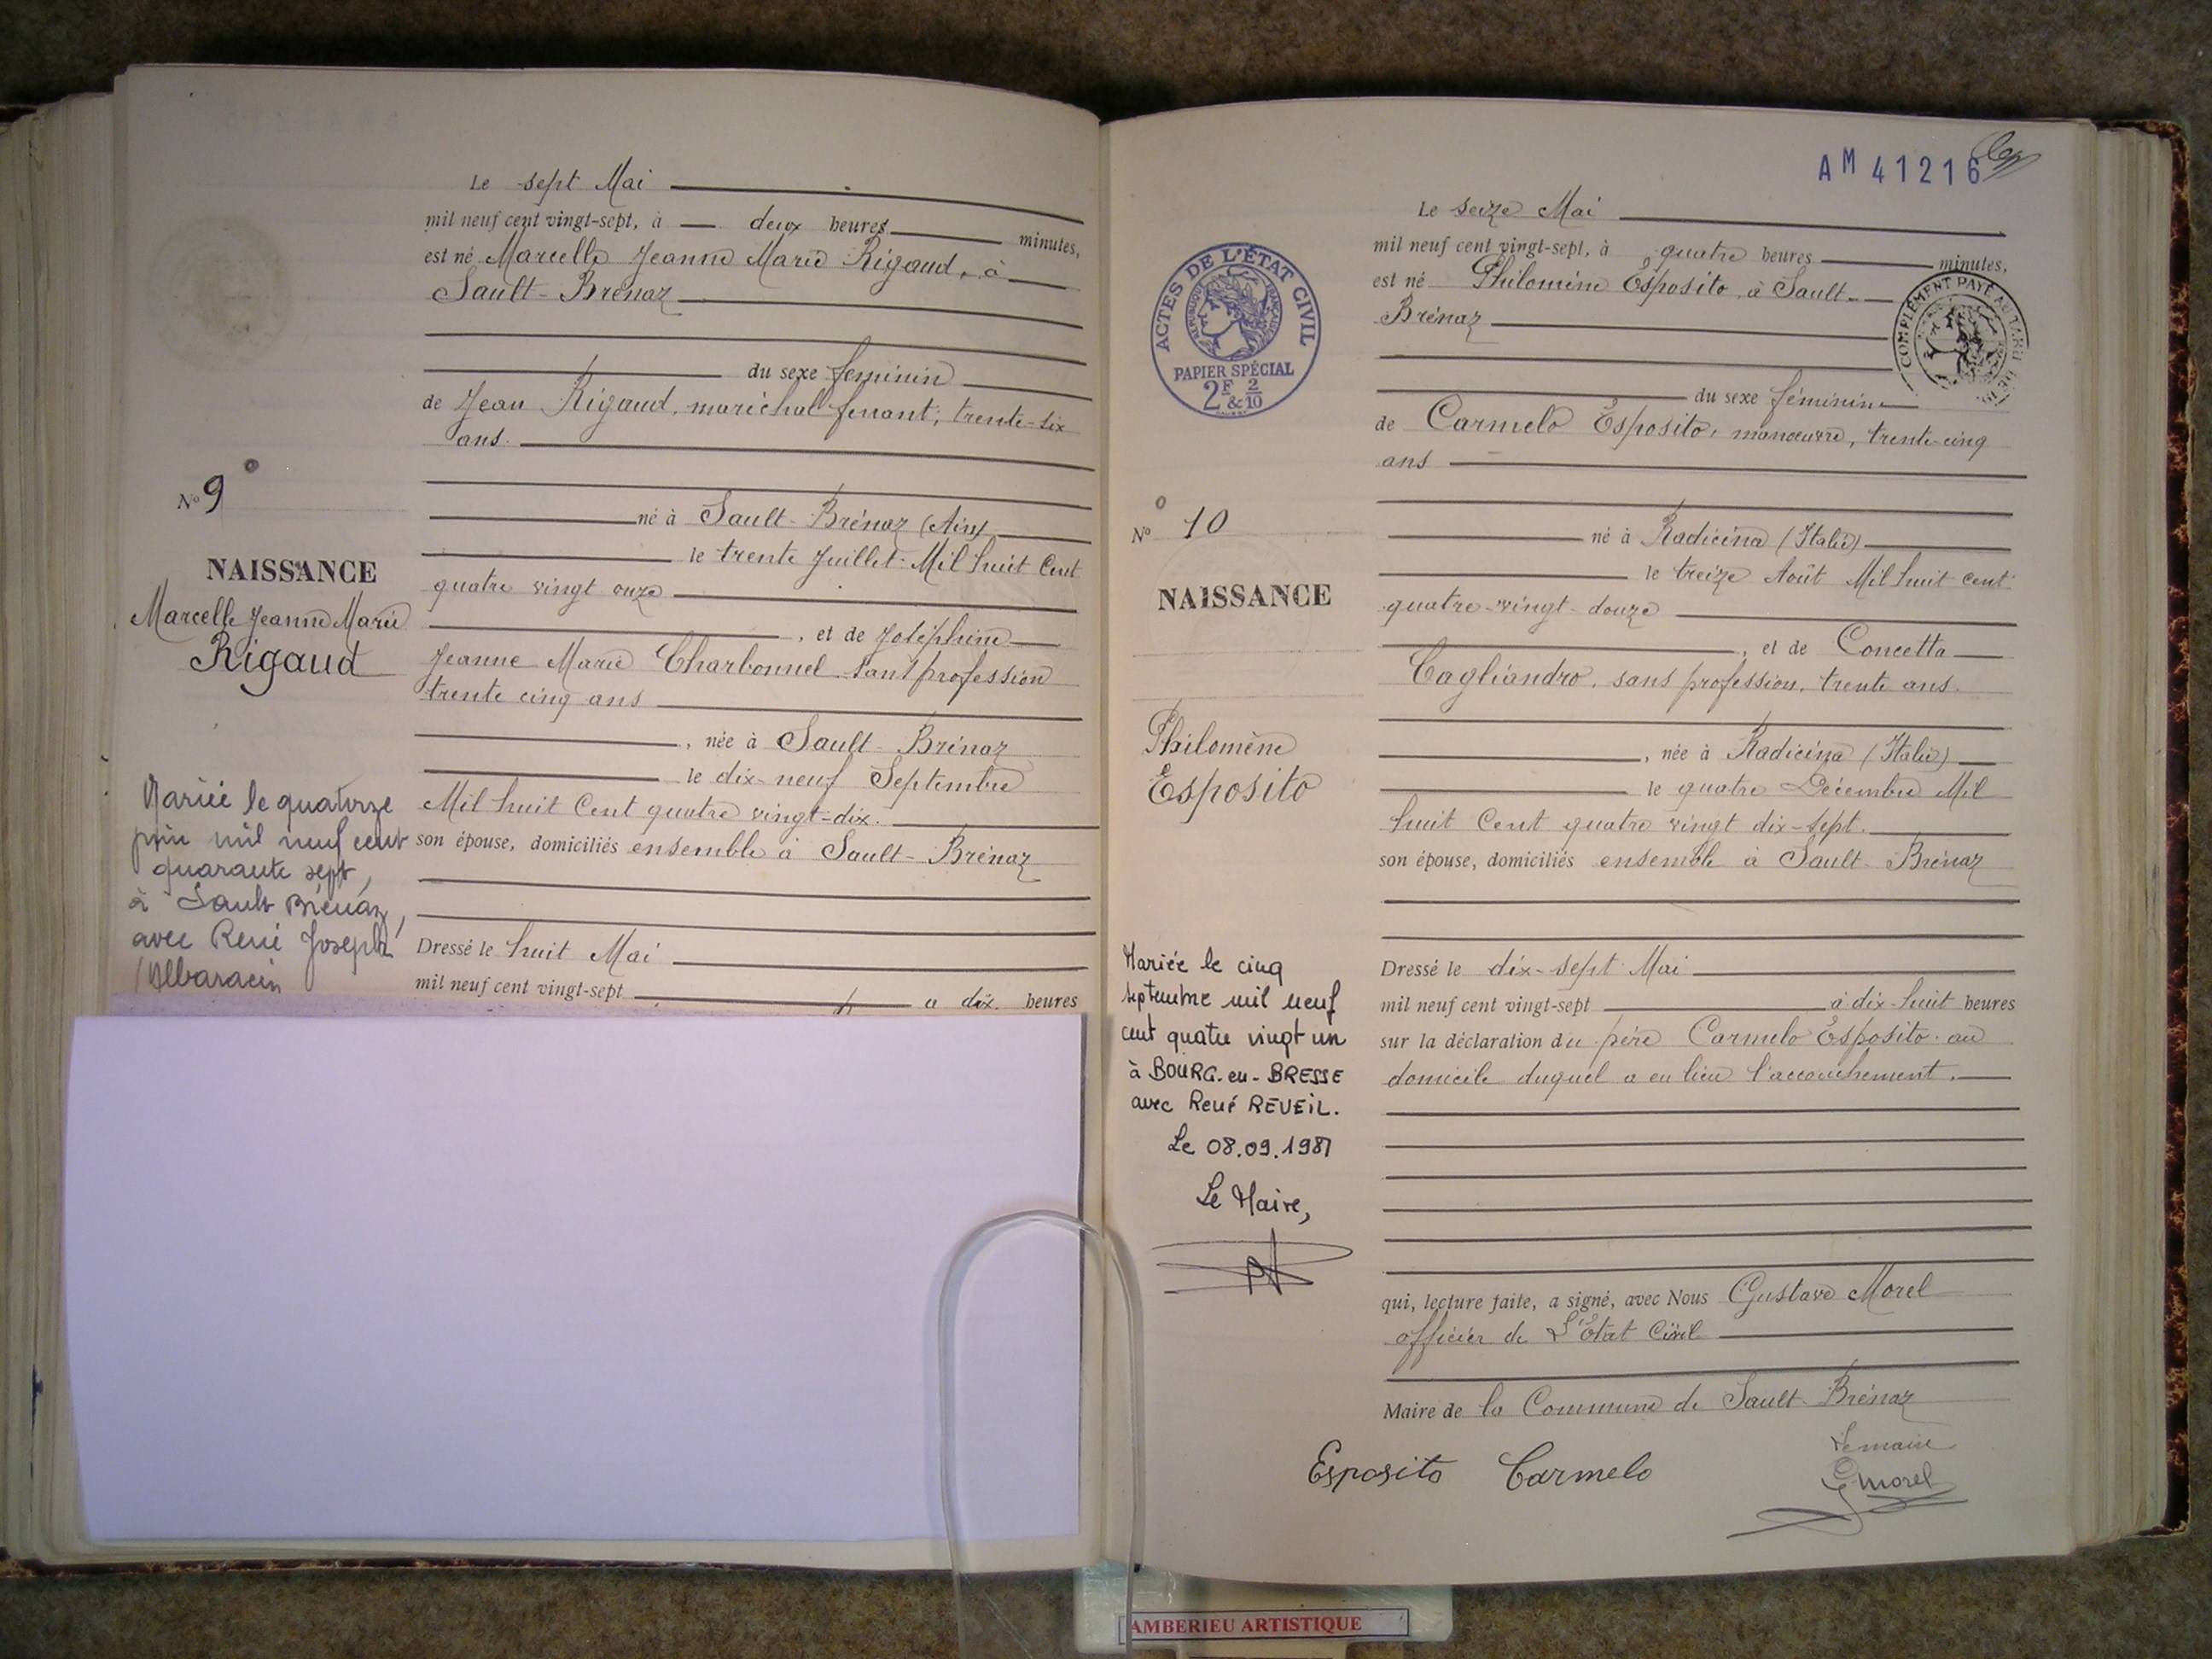 Le sept Mai
mil neuf cent vingt-sept, à deux heures minutes,
est né Marcelle Jeanne Marie Rigaud, à
Sault-Brénaz
du sexe féminin
de Jean Rigaud, maréchal ferrant, trente-six
ans.
né à Sault-Brénaz (Ain)
le trente Juillet Mil huit Cent
quatre vingt onze
, et de Joséphine
Jeanne Marie Charbonnel sans profession
trente cinq ans
, née à Sault-Brénaz
le dix-neuf Septembre
Mil huit Cent quatre vingt-dix.
son épouse, domiciliés ensemble à Sault-Brénaz
Dressé le huit Mai
mil neuf cent vingt-sept a dix heures
N° 9
NAISSANCE
Marcelle Jeanne Marie
Rigaud
Mariée le quatorze
juin mil neuf cent
quarante sept,
à Sault Brénaz,
avec René Joseph
Albaracin
AM 41216
Le seize Mai
mil neuf cent vingt-sept, à quatre heures minutes,
est né Philomène Esposito, à Sault-
Brénaz
du sexe féminin
de Carmelo Esposito, manœuvre, trente-cinq
ans
né à Radicina (Italie)
le treize Août Mil huit cent
quatre-vingt-douze
, et de Concetta
Cagliandro, sans profession, trente ans.
, née à Radicina (Italie)
le quatre Décembre Mil
huit Cent quatre vingt dix-sept.
son épouse, domiciliés ensemble à Sault-Brénaz
Dressé le dix-sept Mai
mil neuf cent vingt-sept à dix-huit heures
sur la déclaration du père Carmelo Esposito au
domicile duquel a eu lieu l'accouchement.
qui, lecture faite, a signé, avec Nous Gustave Morel
officier de l'Etat Civil
Maire de la Commune de Sault-Brénaz
Esposito Carmelo
Le maire
G Morel
ACTES DE L'ÉTAT CIVIL
RÉPUBLIQUE FRANÇAISE
PAPIER SPÉCIAL
2F & 2/10
COMPLÉMENT PAYÉ AU TARIF
N° 10
NAISSANCE
Philomène
Esposito
Mariée le cinq
septembre mil neuf
cent quatre vingt un
à BOURG-en-BRESSE
avec René REVEIL.
Le 08.09.1981
Le Maire,
AMBERIEU ARTISTIQUE